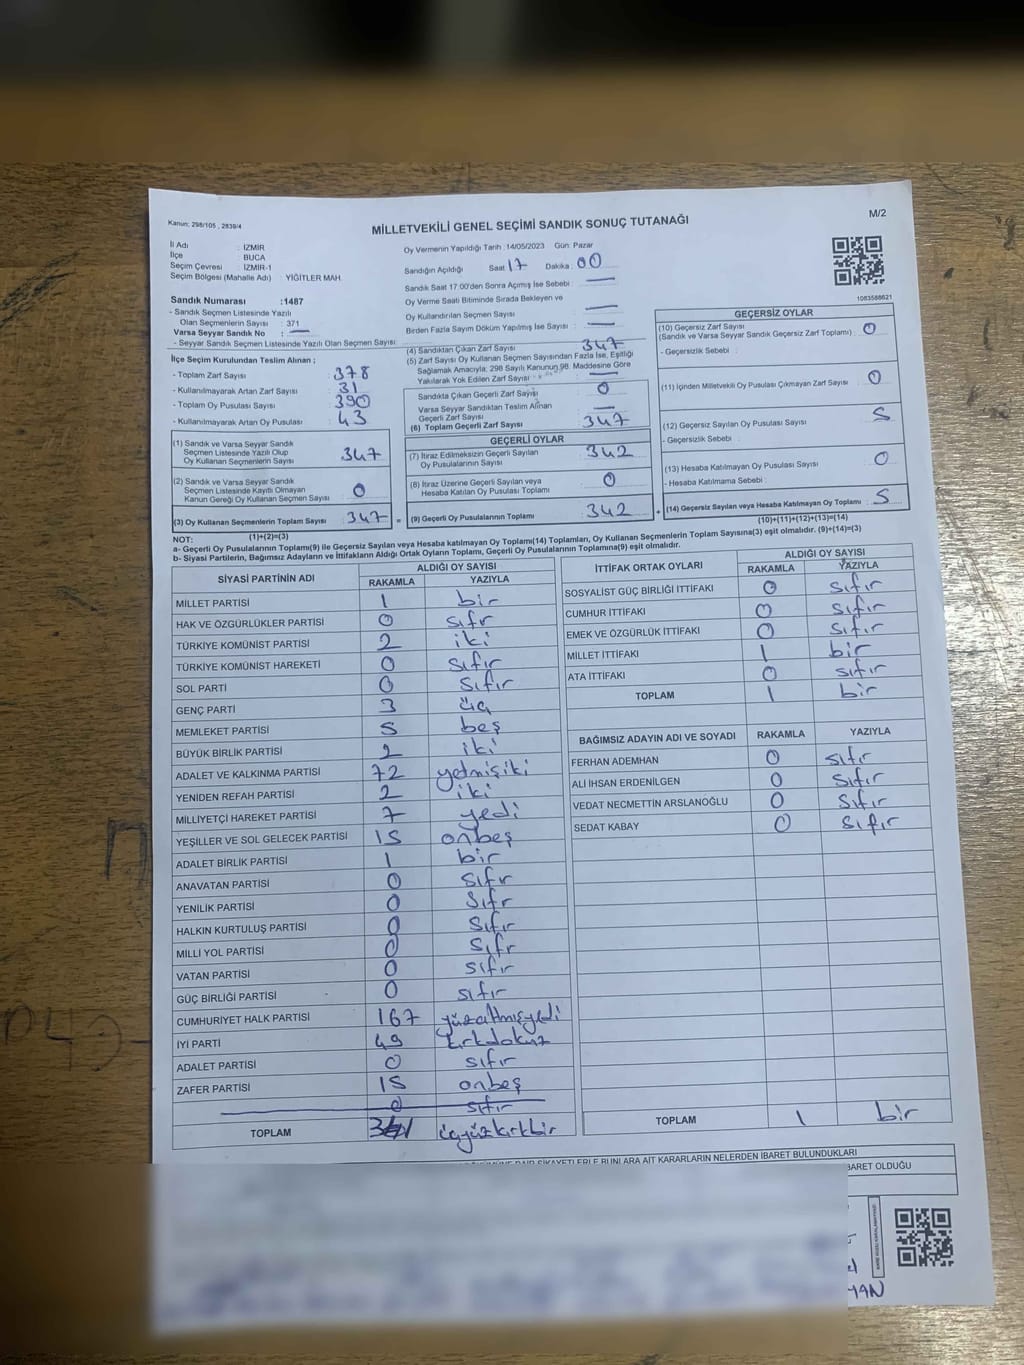 Kanun: 298/105 , 2839/4
MİLLETVEKİLİ GENEL SEÇİMİ SANDIK SONUÇ TUTANAĞI
M/2
İl Adı : İZMİR
İlçe : BUCA
Seçim Çevresi : İZMİR-1
Seçim Bölgesi (Mahalle Adı) : YİĞİTLER MAH.
Oy Vermenin Yapıldığı Tarih : 14/05/2023 Gün: Pazar
Sandığın Açıldığı Saat 17 Dakika : 00
Sandık Saat 17.00'den Sonra Açımış İse Sebebi :
Oy Verme Saati Bitiminde Sırada Bekleyen ve
Oy Kullandırılan Seçmen Sayısı
Birden Fazla Sayım Döküm Yapılmış İse Sayısı :
1083588621
Sandık Numarası : 1487
- Sandık Seçmen Listesinde Yazılı
Olan Seçmenlerin Sayısı : 371
Varsa Seyyar Sandık No :
- Seyyar Sandık Seçmen Listesinde Yazılı Olan Seçmen Sayısı
İlçe Seçim Kurulundan Teslim Alınan ;
- Toplam Zarf Sayısı : 378
- Kullanılmayarak Artan Zarf Sayısı : 31
- Toplam Oy Pusulası Sayısı : 390
- Kullanılmayarak Artan Oy Pusulası : 43
(1) Sandık ve Varsa Seyyar Sandık
Seçmen Listesinde Yazılı Olup
Oy Kullanan Seçmenlerin Sayısı 347
(2) Sandık ve Varsa Seyyar Sandık
Seçmen Listesinde Kayıtlı Olmayan
Kanun Gereği Oy Kullanan Seçmen Sayısı 0
(3) Oy Kullanan Seçmenlerin Toplam Sayısı 347 =
(1)+(2)=(3)
(4) Sandıktan Çıkan Zarf Sayısı 347
(5) Zarf Sayısı Oy Kullanan Seçmen Sayısından Fazla İse, Eşitliği
Sağlamak Amacıyla; 298 Sayılı Kanunun 98. Maddesine Göre
Yakılarak Yok Edilen Zarf Sayısı
Sandıkta Çıkan Geçerli Zarf Sayısı 0
Varsa Seyyar Sandıktan Teslim Alınan
Geçerli Zarf Sayısı
(6) Toplam Geçerli Zarf Sayısı 347
GEÇERLİ OYLAR
(7) İtiraz Edilmeksizin Geçerli Sayılan
Oy Pusulalarının Sayısı 342
(8) İtiraz Üzerine Geçerli Sayılan veya
Hesaba Katılan Oy Pusulası Toplamı 0
(9) Geçerli Oy Pusulalarının Toplamı 342 +
GEÇERSİZ OYLAR
(10) Geçersiz Zarf Sayısı
(Sandık ve Varsa Seyyar Sandık Geçersiz Zarf Toplamı) 0
- Geçersizlik Sebebi :
(11) İçinden Milletvekili Oy Pusulası Çıkmayan Zarf Sayısı 0
(12) Geçersiz Sayılan Oy Pusulası Sayısı 5
- Geçersizlik Sebebi :
(13) Hesaba Katılmayan Oy Pusulası Sayısı 0
- Hesaba Katılmama Sebebi :
(14) Geçersiz Sayılan veya Hesaba Katılmayan Oy Toplamı 5
(10)+(11)+(12)+(13)=(14)
NOT:
a- Geçerli Oy Pusulalarının Toplamı(9) ile Geçersiz Sayılan veya Hesaba katılmayan Oy Toplamı(14) Toplamları, Oy Kullanan Seçmenlerin Toplam Sayısına(3) eşit olmalıdır. (9)+(14)=(3)
b- Siyasi Partilerin, Bağımsız Adayların ve İttifakların Aldığı Ortak Oyların Toplamı, Geçerli Oy Pusulalarının Toplamına(9) eşit olmalıdır.
SİYASİ PARTİNİN ADI ALDIĞI OY SAYISI
RAKAMLA YAZIYLA
MİLLET PARTİSİ 1 bir
HAK VE ÖZGÜRLÜKLER PARTİSİ 0 sıfır
TÜRKİYE KOMÜNİST PARTİSİ 2 iki
TÜRKİYE KOMÜNİST HAREKETİ 0 sıfır
SOL PARTİ 0 sıfır
GENÇ PARTİ 3 üç
MEMLEKET PARTİSİ 5 beş
BÜYÜK BİRLİK PARTİSİ 2 iki
ADALET VE KALKINMA PARTİSİ 72 yetmişiki
YENİDEN REFAH PARTİSİ 2 iki
MİLLİYETÇİ HAREKET PARTİSİ 7 yedi
YEŞİLLER VE SOL GELECEK PARTİSİ 15 onbeş
ADALET BİRLİK PARTİSİ 1 bir
ANAVATAN PARTİSİ 0 sıfır
YENİLİK PARTİSİ 0 sıfır
HALKIN KURTULUŞ PARTİSİ 0 sıfır
MİLLİ YOL PARTİSİ 0 sıfır
VATAN PARTİSİ 0 sıfır
GÜÇ BİRLİĞİ PARTİSİ 0 sıfır
CUMHURİYET HALK PARTİSİ 167 yüzaltmışyedi
İYİ PARTİ 49 kırkdokuz
ADALET PARTİSİ 0 sıfır
ZAFER PARTİSİ 15 onbeş
0 sıfır
TOPLAM 341 üçyüzkırkbir
İTTİFAK ORTAK OYLARI ALDIĞI OY SAYISI
RAKAMLA YAZIYLA
SOSYALİST GÜÇ BİRLİĞİ İTTİFAKI 0 sıfır
CUMHUR İTTİFAKI 0 sıfır
EMEK VE ÖZGÜRLÜK İTTİFAKI 0 sıfır
MİLLET İTTİFAKI 1 bir
ATA İTTİFAKI 0 sıfır
TOPLAM 1 bir
BAĞIMSIZ ADAYIN ADI VE SOYADI RAKAMLA YAZIYLA
FERHAN ADEMHAN 0 sıfır
ALİ İHSAN ERDENİLGEN 0 sıfır
VEDAT NECMETTİN ARSLANOĞLU 0 sıfır
SEDAT KABAY 0 sıfır
TOPLAM 1 bir
DAİR ŞİKAYETLERLE BUNLARA AİT KARARLARIN NELERDEN İBARET BULUNDUKLARI
BARET OLDUĞU